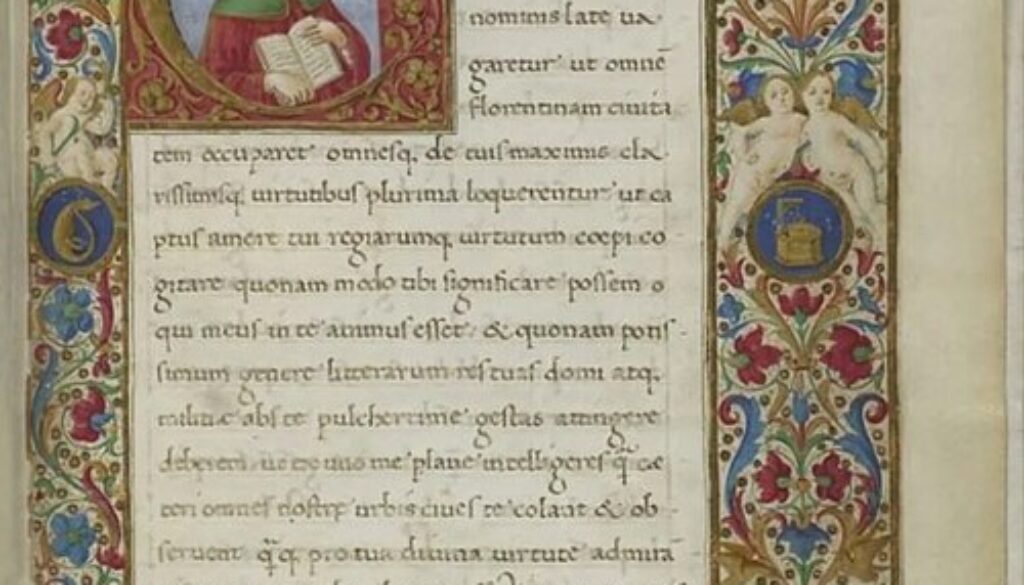 nominis late va-
garetur ut omnē
florentinam civita
tem occuparet omnesq, de tuis maximis cla-
rissimisq, virtutibus plurima loquerentur ut ca
ptus amore tui regiarumq virtutum coepi co
gitare quonam modo tibi significare possem o
qui meus in te animus esset & quonam potis-
simum genere litterarum res tuas domi atq,
militiæ abs te pulcherrime gestas attingere
deberem ut me plane intelligeres
teri omnes nostrę urbis cives te colant & ob-
servent pro tua divina virtute admirā